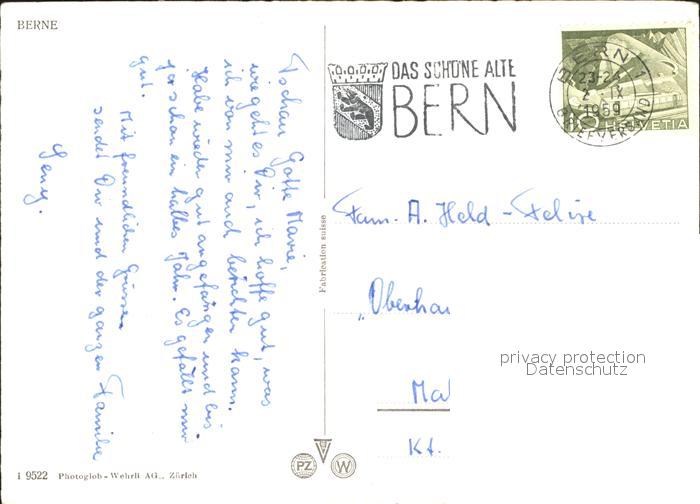 BERNE
Tschau Gotte Marie,
wie geht es Dir, ich hoffe gut, was
ich von mir auch berichten kann.
Habe wieder gut angefangen und bin
ja schon ein halbes Jahr. Es gefällt mir
gut.
Mit freundlichen Grüssen
sendet Dir und der ganzen Familie
i 9522 Photoglob-Wehrli AG., Zürich
Fabrication suisse
PZ W
DAS SCHÖNE ALTE
BERN
BERN 1
23-24
IX
1959
BRIEFVERSAND
10 HELVETIA
Fam. A. Held -
"Oberhau
Mat
Kt.
privacy protection
Datenschutz